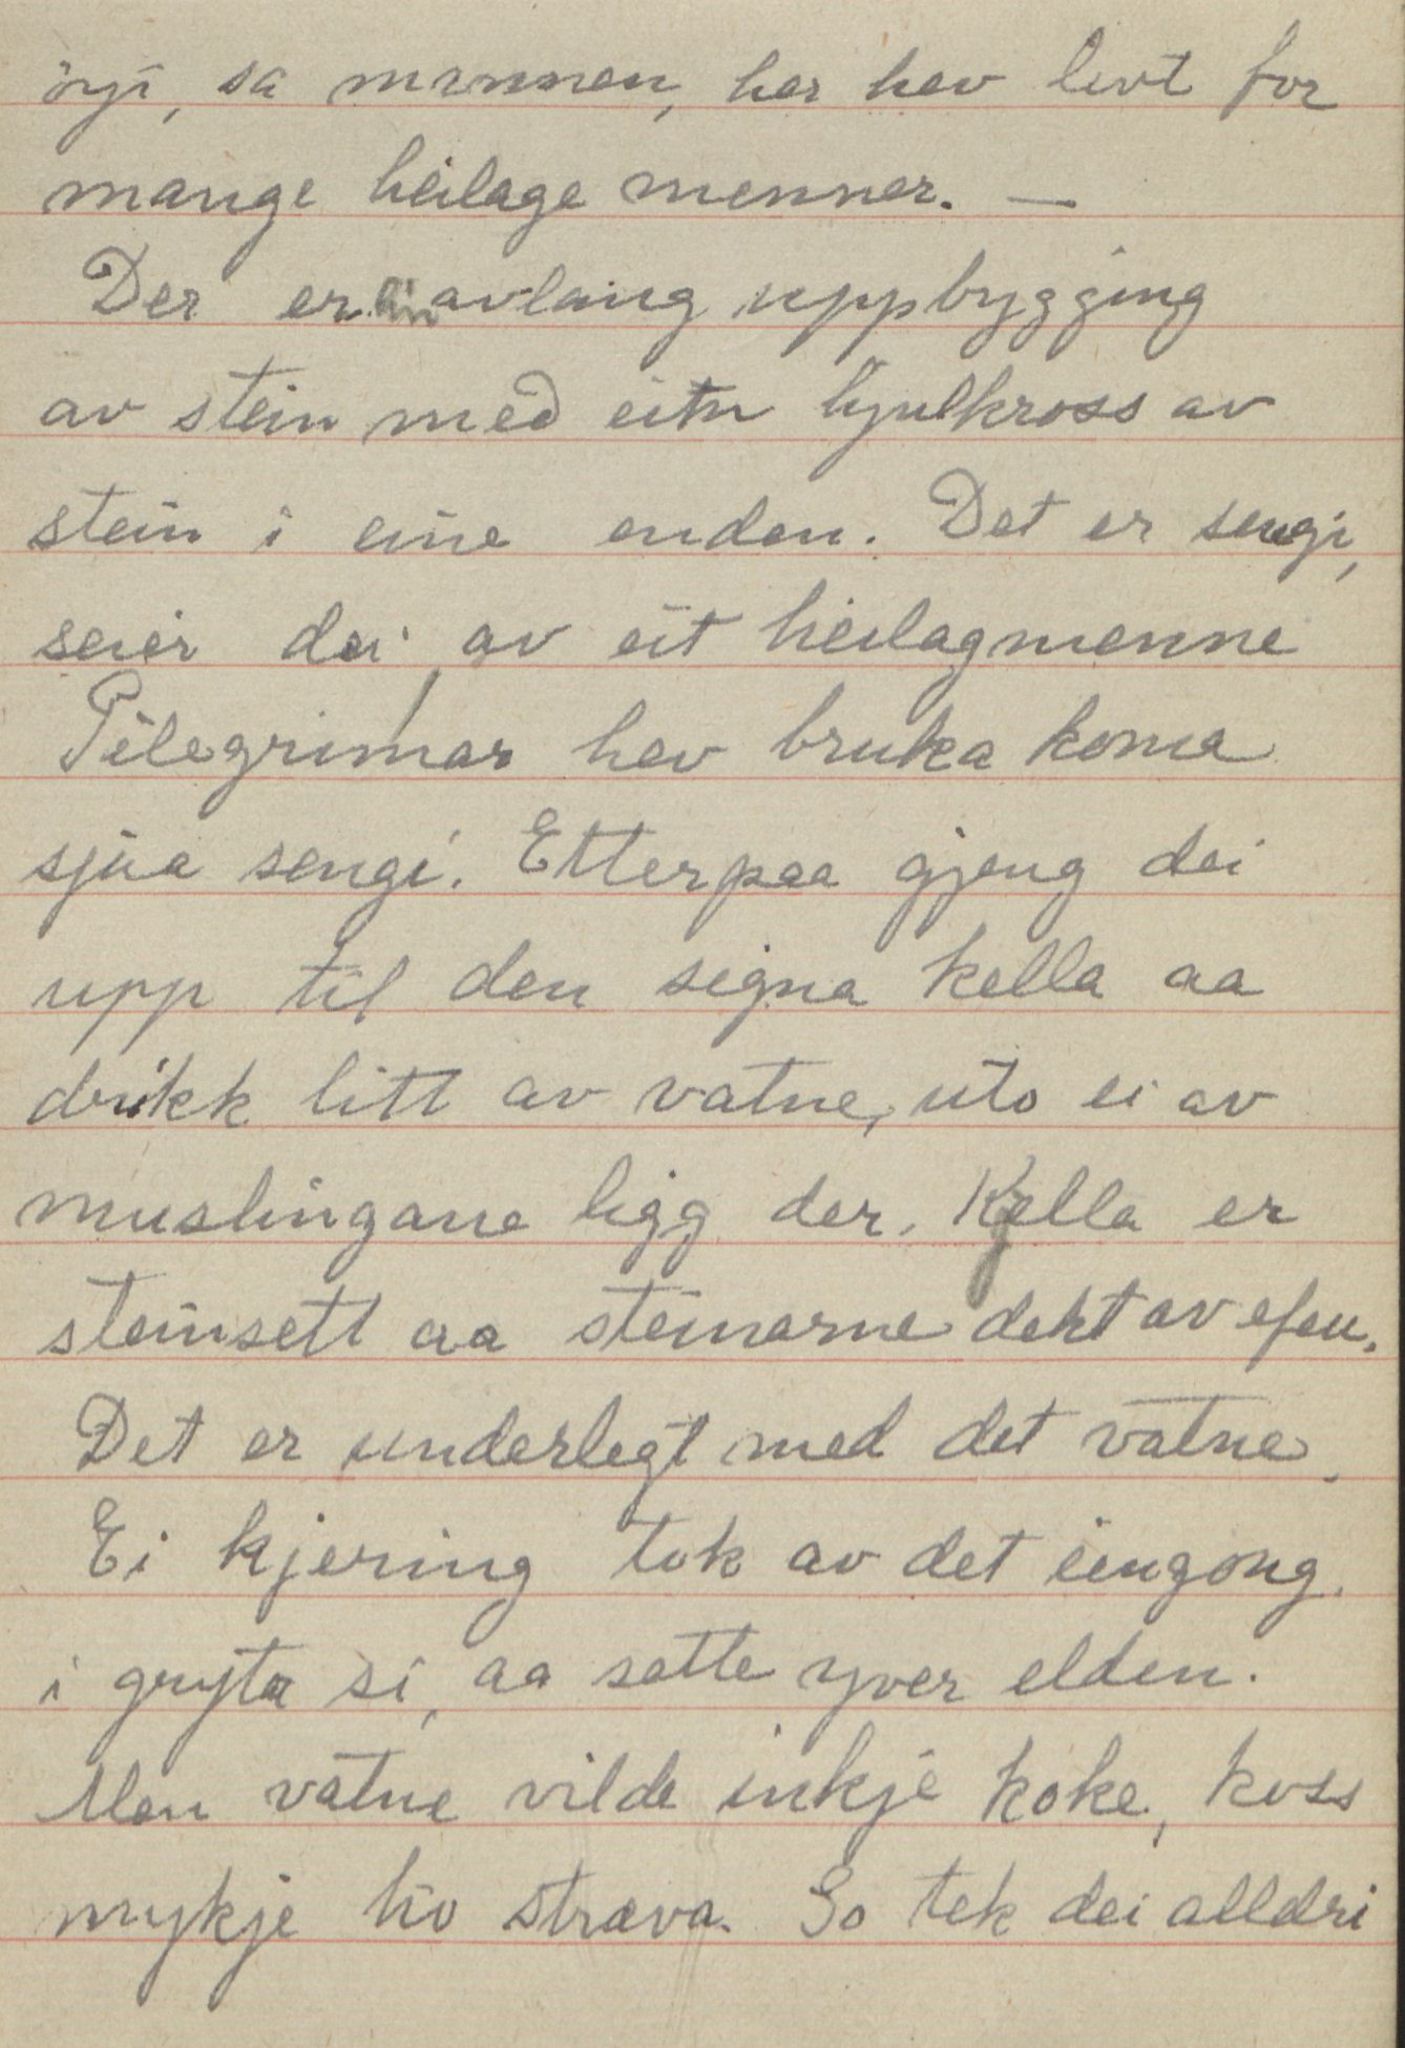 öyi, sa mannen, her hev levt for
mange heilage menner. —
Der er ein avlang uppbygging
av stein med eitn hjulkross av
stein i eine enden. Det er sengi,
seier dei av eit heilagmenne
Pilegrimar hev bruka koma
sjaa sengi. Etterpaa gjeng dei
upp til den signa kella aa
drikk litt av vatne, uto ei av
muslingane ligg der. Kjella er
steinsett aa steinarne dekt av efeu.
Det er underlegt med det vatne.
Ei kjering tok av det eingong.
i gryta si, aa sette yver elden.
Men vatne vilde inkje koke, koss
mykje ho stræva. So tek dei alldri